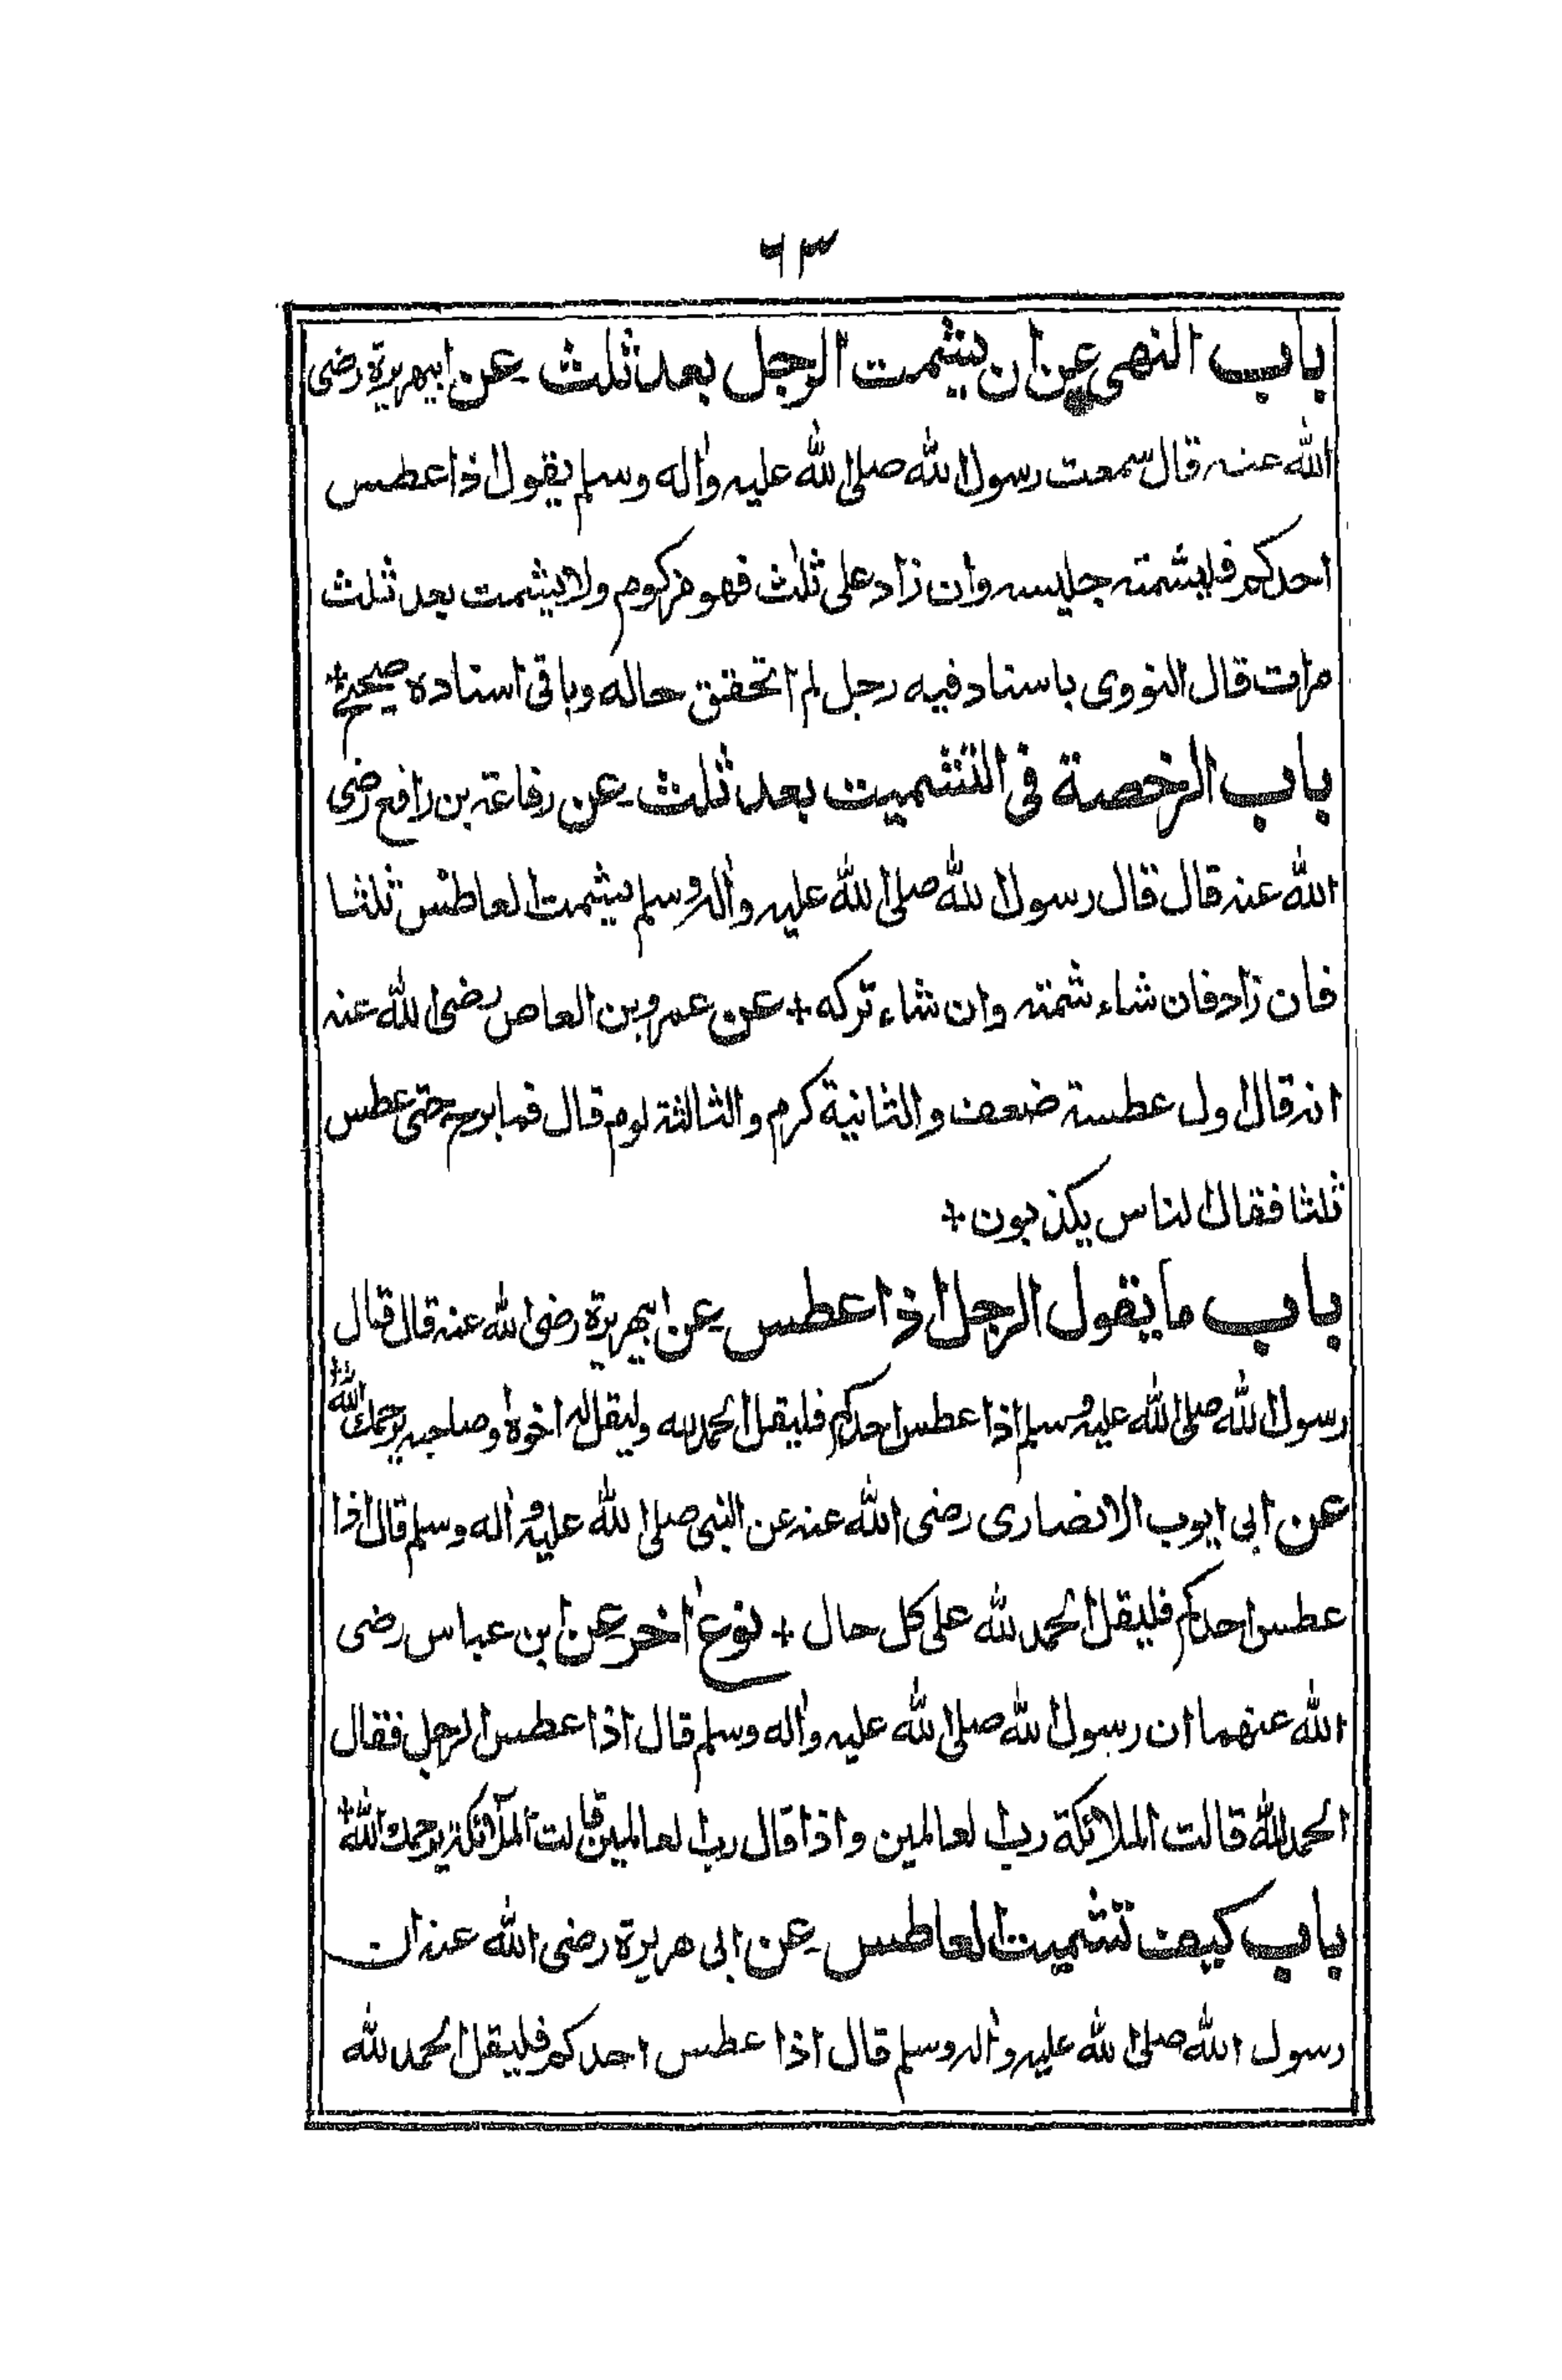 ٦٣
باب النهى عن ان يشمت الرجل بعد ثلث عن ابيهريرة رضى
الله عنه قال سمعت رسول الله صلى الله عليه واٰله وسلم يقول اذا عطس
احدكم فليشمته جليسه وان زاد على ثلٰث فهو مزكوم ولا يشمت بعد ثلث
مرات قال النووى باسناد فيه رجل لم اتحقق حاله وباقى اسناده صحيح +
باب الرخصة فى التشميت بعد ثلث عن رفاعة بن رافع رضى
الله عنه قال قال رسول الله صلى الله عليه واٰله وسلم يشمت العاطس ثلثا
فان زاد فان شاء شمته وان شاء تركه + عن عمرو بن العاص رضى الله عنه
انه قال اول عطسة ضعف والثانية كرم والثالثة لوم قال فما برح حتى عطس
ثلثا فقال الناس يكذبون +
باب ما يقول الرجل اذا عطس عن ابيهريرة رضى الله عنه قال قال
رسول الله صلى الله عليه وسلم اذا عطس احدكم فليقل الحمد لله وليقل له اخوه او صاحبه يرحمك الله +
عن ابى ايوب الانصارى رضى الله عنه عن النبى صلى الله عليه واٰله وسلم قال اذا
عطس احدكم فليقل الحمد لله على كل حال + نوع اٰخر عن ابن عباس رضى
الله عنهما ان رسول الله صلى الله عليه واٰله وسلم قال اذا عطس الرجل فقال
الحمد لله قالت الملائكة رب العالمين واذا قال رب العالمين قالت الملآئكة يرحمك الله +
باب كيف تشميت العاطس عن ابى هريرة رضى الله عنه ان
رسول الله صلى الله عليه واٰله وسلم قال اذا عطس احدكم فليقل الحمد لله